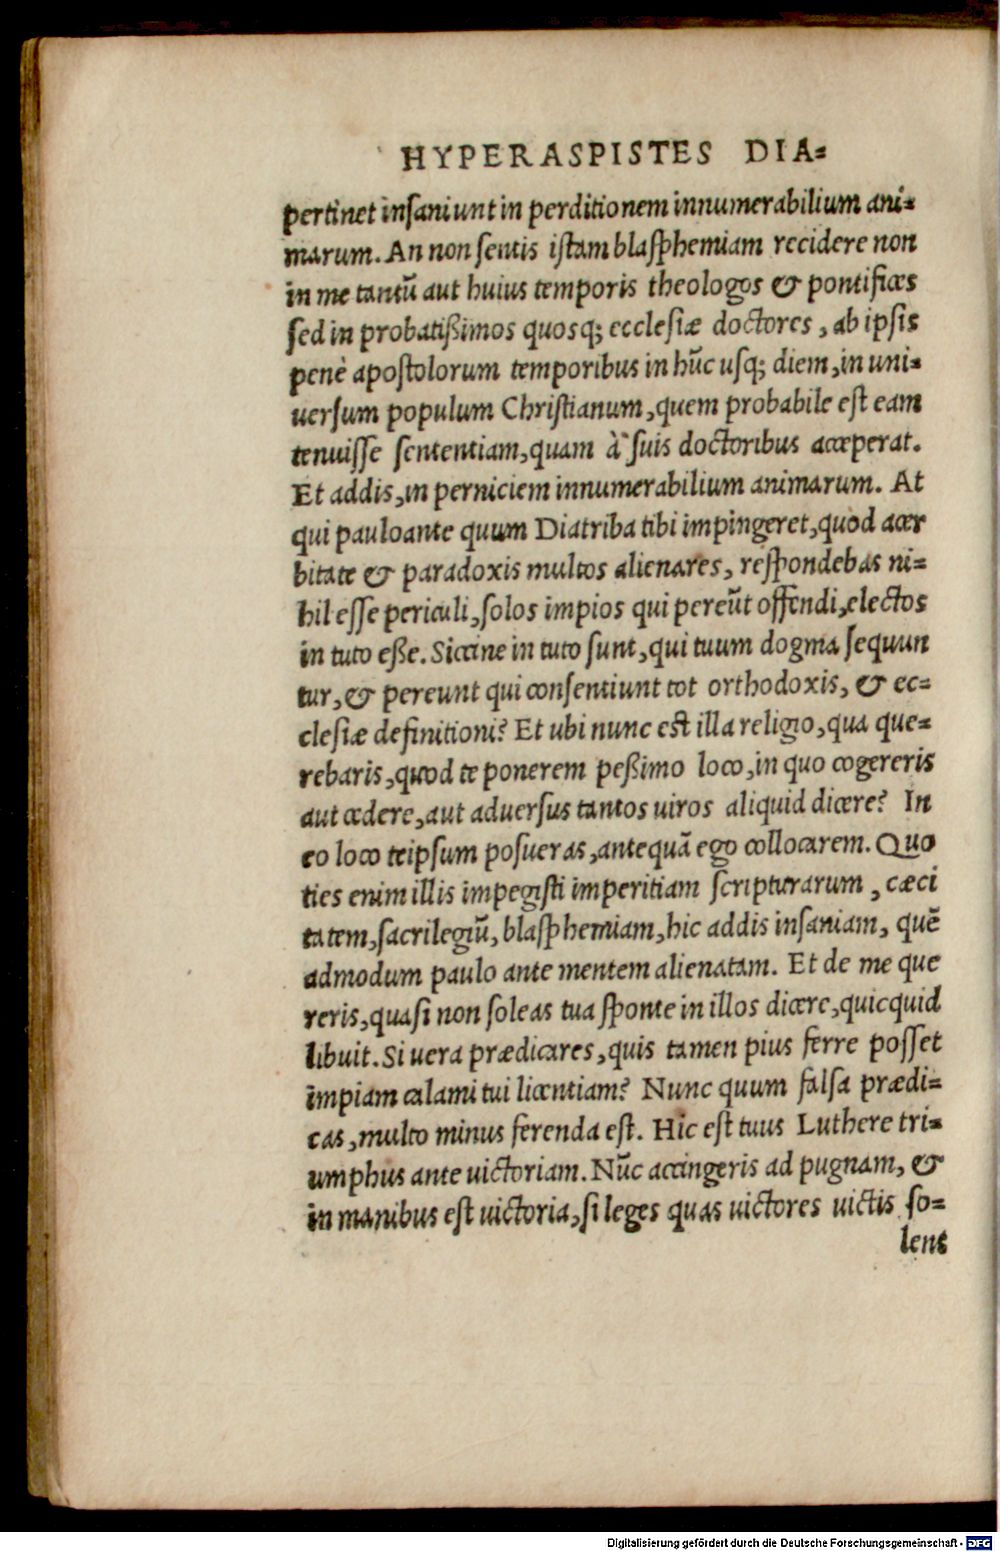 HYPERASPISTES DIA=
pertinet inſaniunt in perditionem innumerabilium ani=
marum. An non ſentis iſtam blaſphemiam recidere non
in me tantũ aut huius temporis theologos & pontifices
ſed in probatißimos quosq; eccleſiæ doctores, ab ipſis
penè apoſtolorum temporibus in hũc uſq; diem, in uni=
uerſum populum Chriſtianum, quem probabile eſt eam
tenuiſſe ſententiam, quam à ſuis doctoribus acceperat.
Et addis, in perniciem innumerabilium animarum. At
qui pauloante quum Diatriba tibi impingeret, quod acer
bitate & paradoxis multos alienares, reſpondebas ni=
hil eſſe periculi, ſolos impios qui pereũt offendi, electos
in tuto eße. Siccine in tuto ſunt, qui tuum dogma ſequun
tur, & pereunt qui conſentiunt tot orthodoxis, & ec=
cleſiæ definitioni? Et ubi nunc eſt illa religio, qua que=
rebaris, quod te ponerem peßimo loco, in quo cogereris
aut cedere, aut aduerſus tantos uiros aliquid dicere? In
eo loco teipſum poſueras, antequã ego collocarem. Quo
ties enim illis impegiſti imperitiam ſcripturarum, cæci
tatem, ſacrilegiũ, blaſphemiam, hic addis inſaniam, quẽ
admodum paulo ante mentem alienatam. Et de me que
reris, quaſi non ſoleas tua ſponte in illos dicere, quicquid
libuit. Si uera prædicares, quis tamen pius ferre poſſet
impiam calami tui licentiam? Nunc quum falſa prædi=
cas, multo minus ferenda eſt. Hic eſt tuus Luthere tri=
umphus ante uictoriam. Nũc accingeris ad pugnam, &
in manibus eſt uictoria, ſi leges quas uictores uictis ſo=
lent
Digitalisierung gefördert durch die Deutsche Forschungsgemeinschaft - DFG